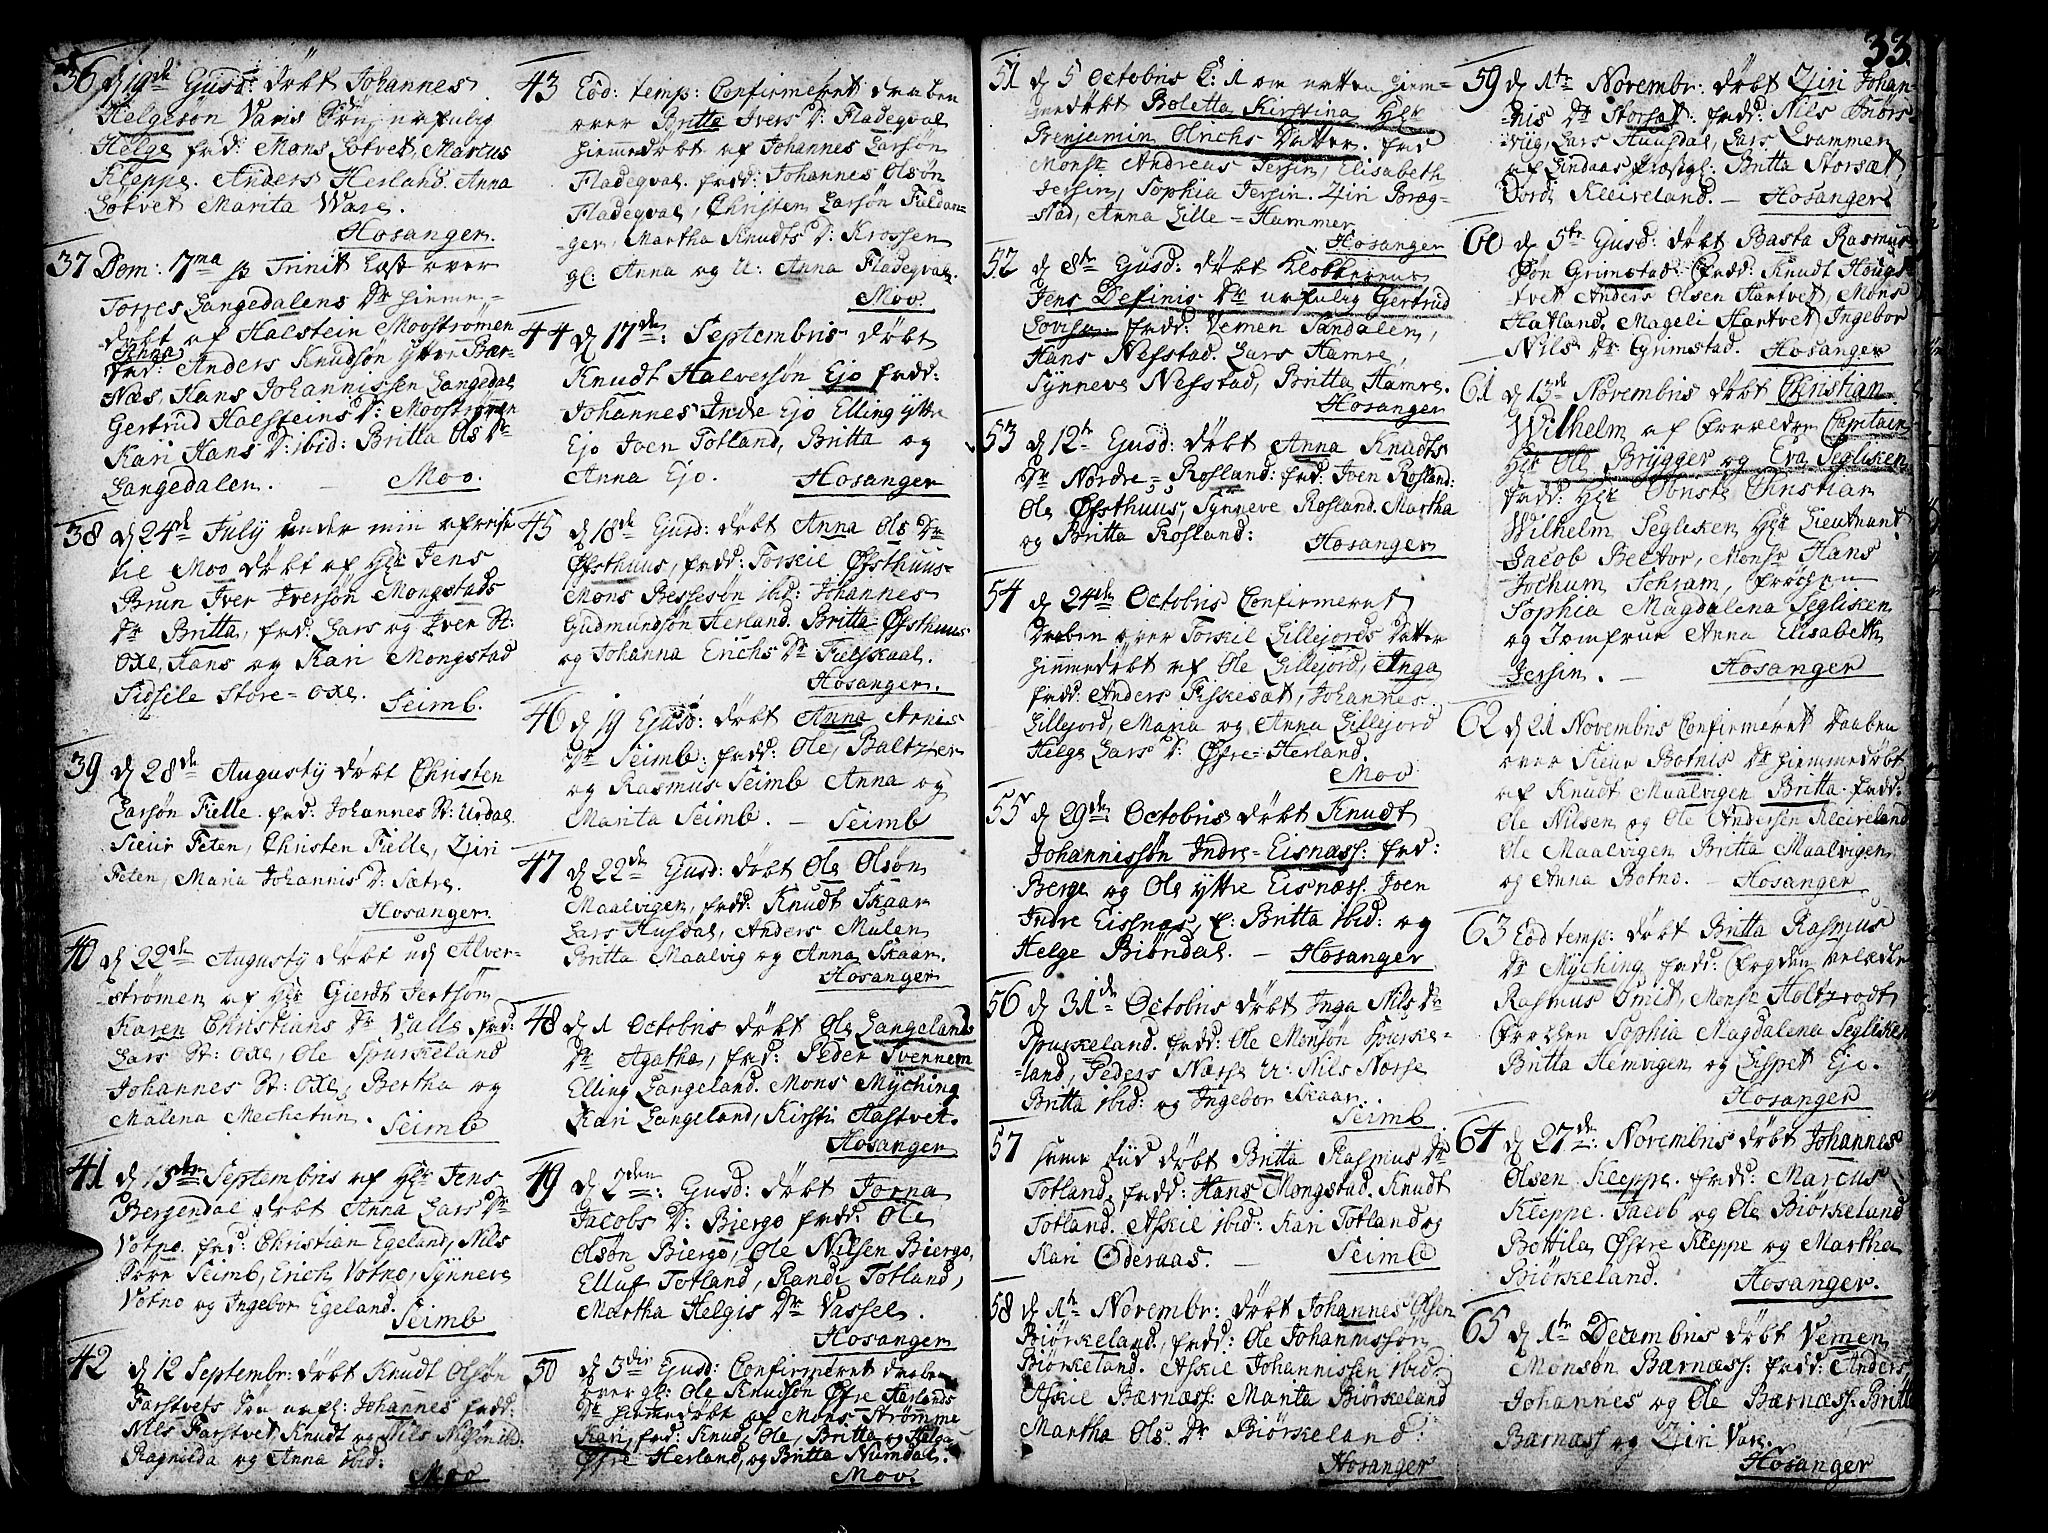 33.
36 d 19de Ejusd: døbt Johannes
Helgesøn Varis Søn, nafnlig
Helge fad: Mons Løtvet, Marcus
Kleppe. Anders Herland. Anna
Løtvet Marita Ware.
Hosanger.
37 Dom: 7ma p Trinit Læst over
Torres Langedalens Dr hieme-
døbt af Halstein Moostrømen
Anna
fad: Anders Knudsøn
Næs. Hans Johannissen Langedal
Gertrud Halsteins D: Moostrømen
Kari Hans D: ibid: Britta Ols Dr
Langedalen. Moo.
38 d 24de July under min afreise
til Moo døbt af Hr Jens
Brun Iver Iversøn Mongstads
Dr Britta, fad: Lars og Iver St:
Oxe, Hans og Kari Mongstad
Sidsile Store-oxe. Seimb.
39 d 28de Augusty døbt Christen
Larsøn Fielle. fad: Johannes St: Urdal
Sieur Feten, Christen Fielle, Ziri
Feten, Maria Johannis D: Sætre.
Hosanger.
40 d 22de Augusty døbt udj Alver-
strømen af Hr Gierdt Jertsøn
Karen Christians Dr Valle fad:
Lars St: oxe, Ole Spurkeland
Johannes St: oxe, Bertha og
Malena Mechetun. Seimb
41 d 15de Septembris af Hr Jens
Bergendal døbt Anna Lars Dr
Votno. fad: Christian Egeland, Nils
Søre Seimb, Erich Votno, Synneve
Votno og Ingebor Egeland.
Seimb
42 d 12 Septembr: døbt Knudt Olsøn
Farstvets Søn nafl: Johannes fadd:
Nils Farstvet Knudt og Nils Nilsøn ibd:
Ragnilda og Anna ibid:
Moo
43 Eod: temp: Confirmeret daaben
over Britta Ivers D: Fladeqval
hiemmedøbt af Johannes Larsøn
Fladeqval. fadd: Johannes Olsøn
Fladeqval, Christen Larsøn Fuldan-
ger, Martha Knudts D: Krossen
gl: Anna og U: Anna Fladeqval.
Moo.
44 d 17de: Septembris døbt
Knudt Halversøn Ejo fadd:
Johannes Indre Ejo Elling ytre
Ejo Joen Totland, Britta og
Anna Ejo. Hosanger
45 d 18de Ejusd: døbt Anna Ols Dr
Øfsthuus, fadd: Torkil Øfsthuus-
Mons Bessesøn ibd: Johannes
Gudmundsøn Herland. Britta Øfsthuus
og Johanna Erichs Dr Fielskaal.
Hosanger.
46 d 19 Ejusd: døbt Anna Arnis
Dr Seimb: fadd: Ole, Baltzer
og Rasmus Seimb Anna og
Marita Seimb. - Seimb
47 d 22de Ejusd: døbt Ole Olsøn
Maalvigen, fadd: Knudt Skaar
Lars Husdal, Anders Mulen
Britta Maalvig og Anna Skaar.
Hosanger
48 d 1 Octobris døbt Ole Langelands
Dr Agatha, fad: Peder Svennem
Elling Langeland. Mons Myching
Kari Langeland, Kirsti Hastvet.
Hosanger
49 d 2den: Ejusd: døbt Jorna
Jacobs D: Biergo fadd: Ole
Olsøn Biergo, Ole Nilsen Biergo,
Elluf Totland, Randi Totland,
Martha Helgis Dr Vassel.
Hosanger
50 d 3die Ejusd: Confirmeret daaben
over gl: Ole Knudsøn Øfre Herlands
Dr hiemmedøbt af Mons Strømme
Kari, fad: Knud, Ole, Britta og Helga
Øfre Herland, og Britta Numdal.
Moo.
51 d 5 Octobris
døbt Boletta Kirstina Hr
Benjamin Olrichs Datter. fad
Monsr Andreas Jersin, Elisabeth
Jersin, Sophia Jersin. Ziri Bræg-
stad, Anna Lille-Hammer
Hosanger
52 d 8de Ejusd: døbt Klokkerens
Jens Definis Dr nafnlig Gertrud
Lovisa fadd: Vemen Sandalen,
Hans Nesstad. Lars Hamre,
Synneve Nesstad, Britta Hamre.
Hosanger
53 d 12te Ejusd: døbt Anna Knudts
Dr Nordre-Rosland: fad: Joen Rosland:
Ole Øfsthuus, Synneve Rosland. Martha
og Britta Rosland: Hosanger
54 d 24de Octobris Confirmeret
Daaben over Torkil Lillejords Datter
hiemmedøbt af Ole Lillejord, Inga
fadd: Anders Fiskesæt, Johannes
Lillejord, Maria og Anna Lillejord
Helge Lars D: Øfre-Herland.
Moo
55 d 29de: Octobris døbt Knudt
Johannissøn Indre-Eisnæss: fad:
Berge og Ole yttre Eisnæss. Joen
Indre Eisnæs, E: Britta ibid: og
Helge Biøndal. - Hosanger
56 d 31de Octobris døbt Inga Nils Dr
Spurkeland. fadd: Ole Monsøn Spurke-
land, Peders Næsse U: Nils Norse
Britta ibid: og Ingebor Skaar.
Seimb
57 samme tiid døbt Britta Rasmus Dr
Totland, fadd: Hans Mongstad. Knudt
Totland. Askil ibid: Kari Totland og
Kari Oderaas. - Seimb
58 d 1te Novembr: døbt Johannes Olsen
Biørkeland, fadd: Ole Johannissøn
Biørkeland. Askil Johannissen ibid:
Askil Bærnæss: Marita Biørkeland
Martha Ols Dr Biørkeland:
Hosanger
59 d 1te Novembr: døbt Ziri Johan-
nis Dr Storsæt: fadd: Nils Thors
wiig, Lars Huusdal, Lars Qvammen
af Lindaas Præstgl: Britta Storsæt,
Dordi Kleiveland. - Hosanger
60 d 5te Ejusd: døbt Basta Rasmus
søn Grimstad: fadd: Knudt Hougs-
tvet Anders Olsen Hartvet, Mons
Hatland. Mageli Hartvet Ingebor
Nils Dr Grimstad. Hosanger
61 d 13de Novembris døbt Christian
Wilhelm af Forældre Capitain
Hr Ole Brygger og Eva Segliken
fadd: Hr Obriste Christian
Wilhelm Segliken Hr Lieutnant
Jacob Bector, Monsr Hans
Jochum Schram, Frøchen
Sophia Magdalena Segliken
og Jomfrue Anna Elisabeth
Jersin. - Hosanger
62 d 21 Novembris Confirmeret Daaben
over Sieur Botnis Dr hiemmedøbt
af Knudt Maalvigen Britta. fadd:
Ole Nilsen og Ole Andersen Kleiveland
Ole Maalvigen Britta Maalvigen
og Anna Botne. - Hosanger
63 Eod temp: døbt Britta Rasmus
Dr Myching fadd: Fogden
Rasmus Smit, Monsr Holtzrodt
Frøchen Sophia Magdalena Segliken
Britta Hemvigen og Lispet Ejo.
Hosanger
64 d 27de: Novembris døbt Johannes
Olsen Kleppe. fadd: Marcus
Kleppe. Jacob og Ole Biørkeland
Bottila Øfre Kleppe og Martha
Biørkeland. Hosanger.
65 d 1te Decembris døbt Vemen
Monsøn Bærnæss: fadd: Anders
Johannes og Ole Bærnæss. Britta
Bærnæss og Ziri Vare.
Hosanger